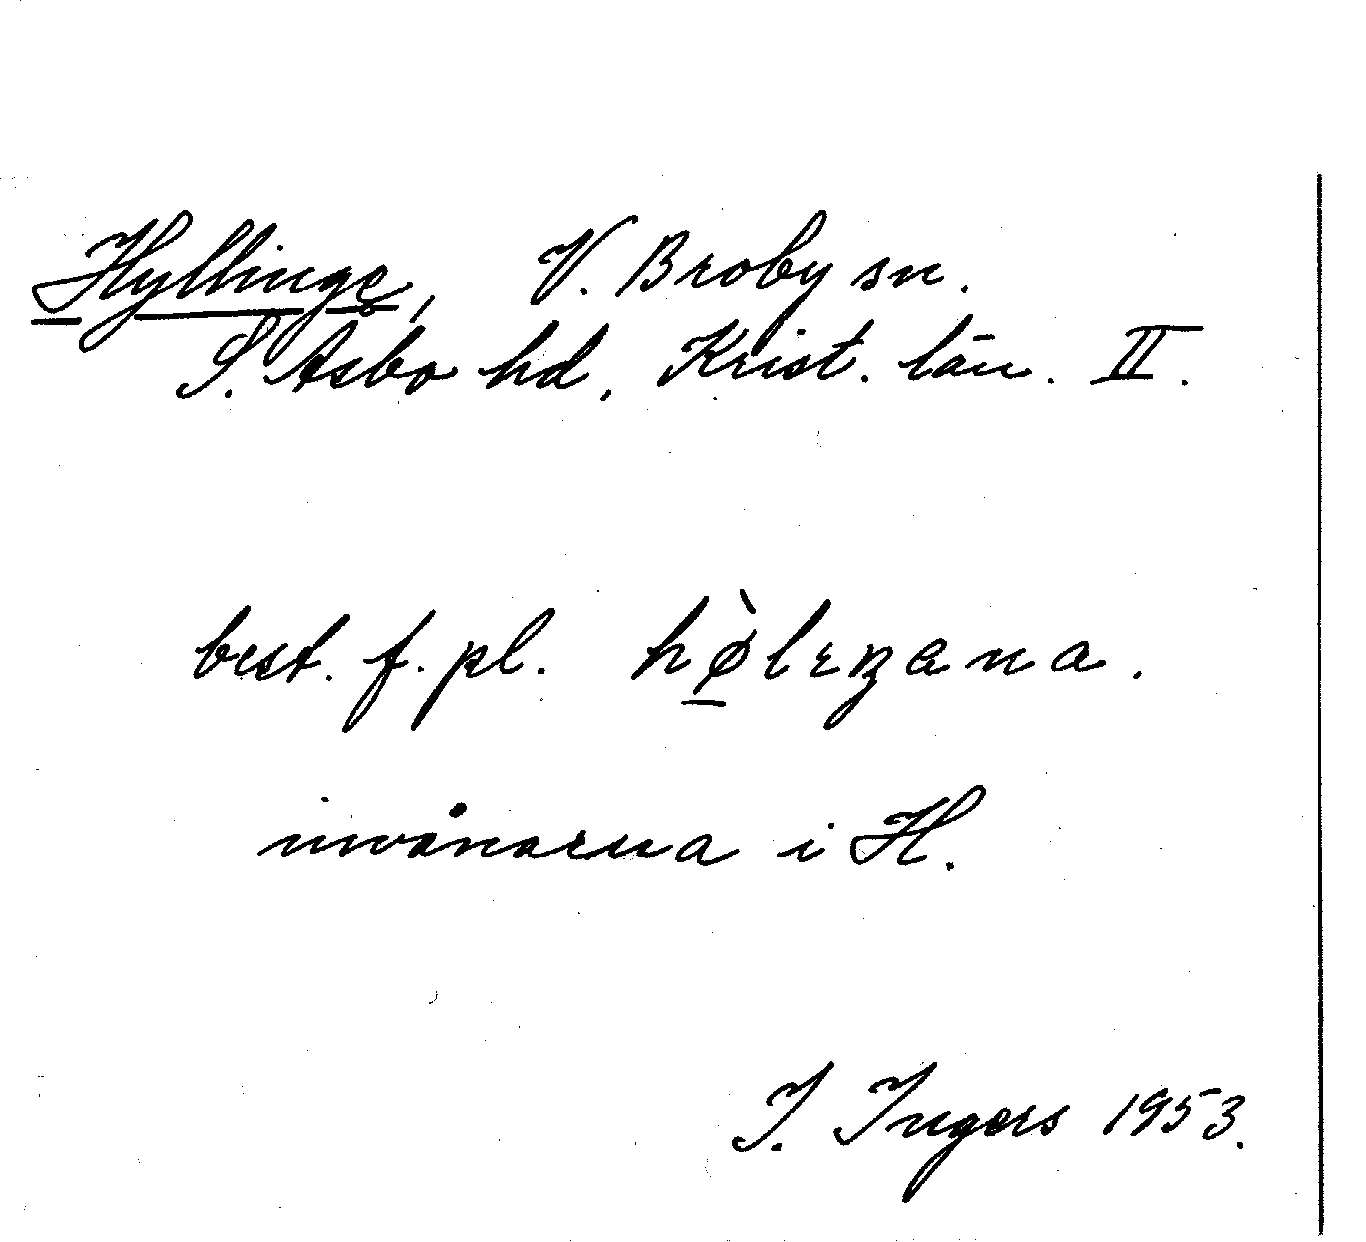 Hyllinge, V. Broby sn.
S. Åsbo hd, Krist. län. II.
best. f. pl. hø̀lıŋana.
invånarna i H.
I. Ingers 1953.